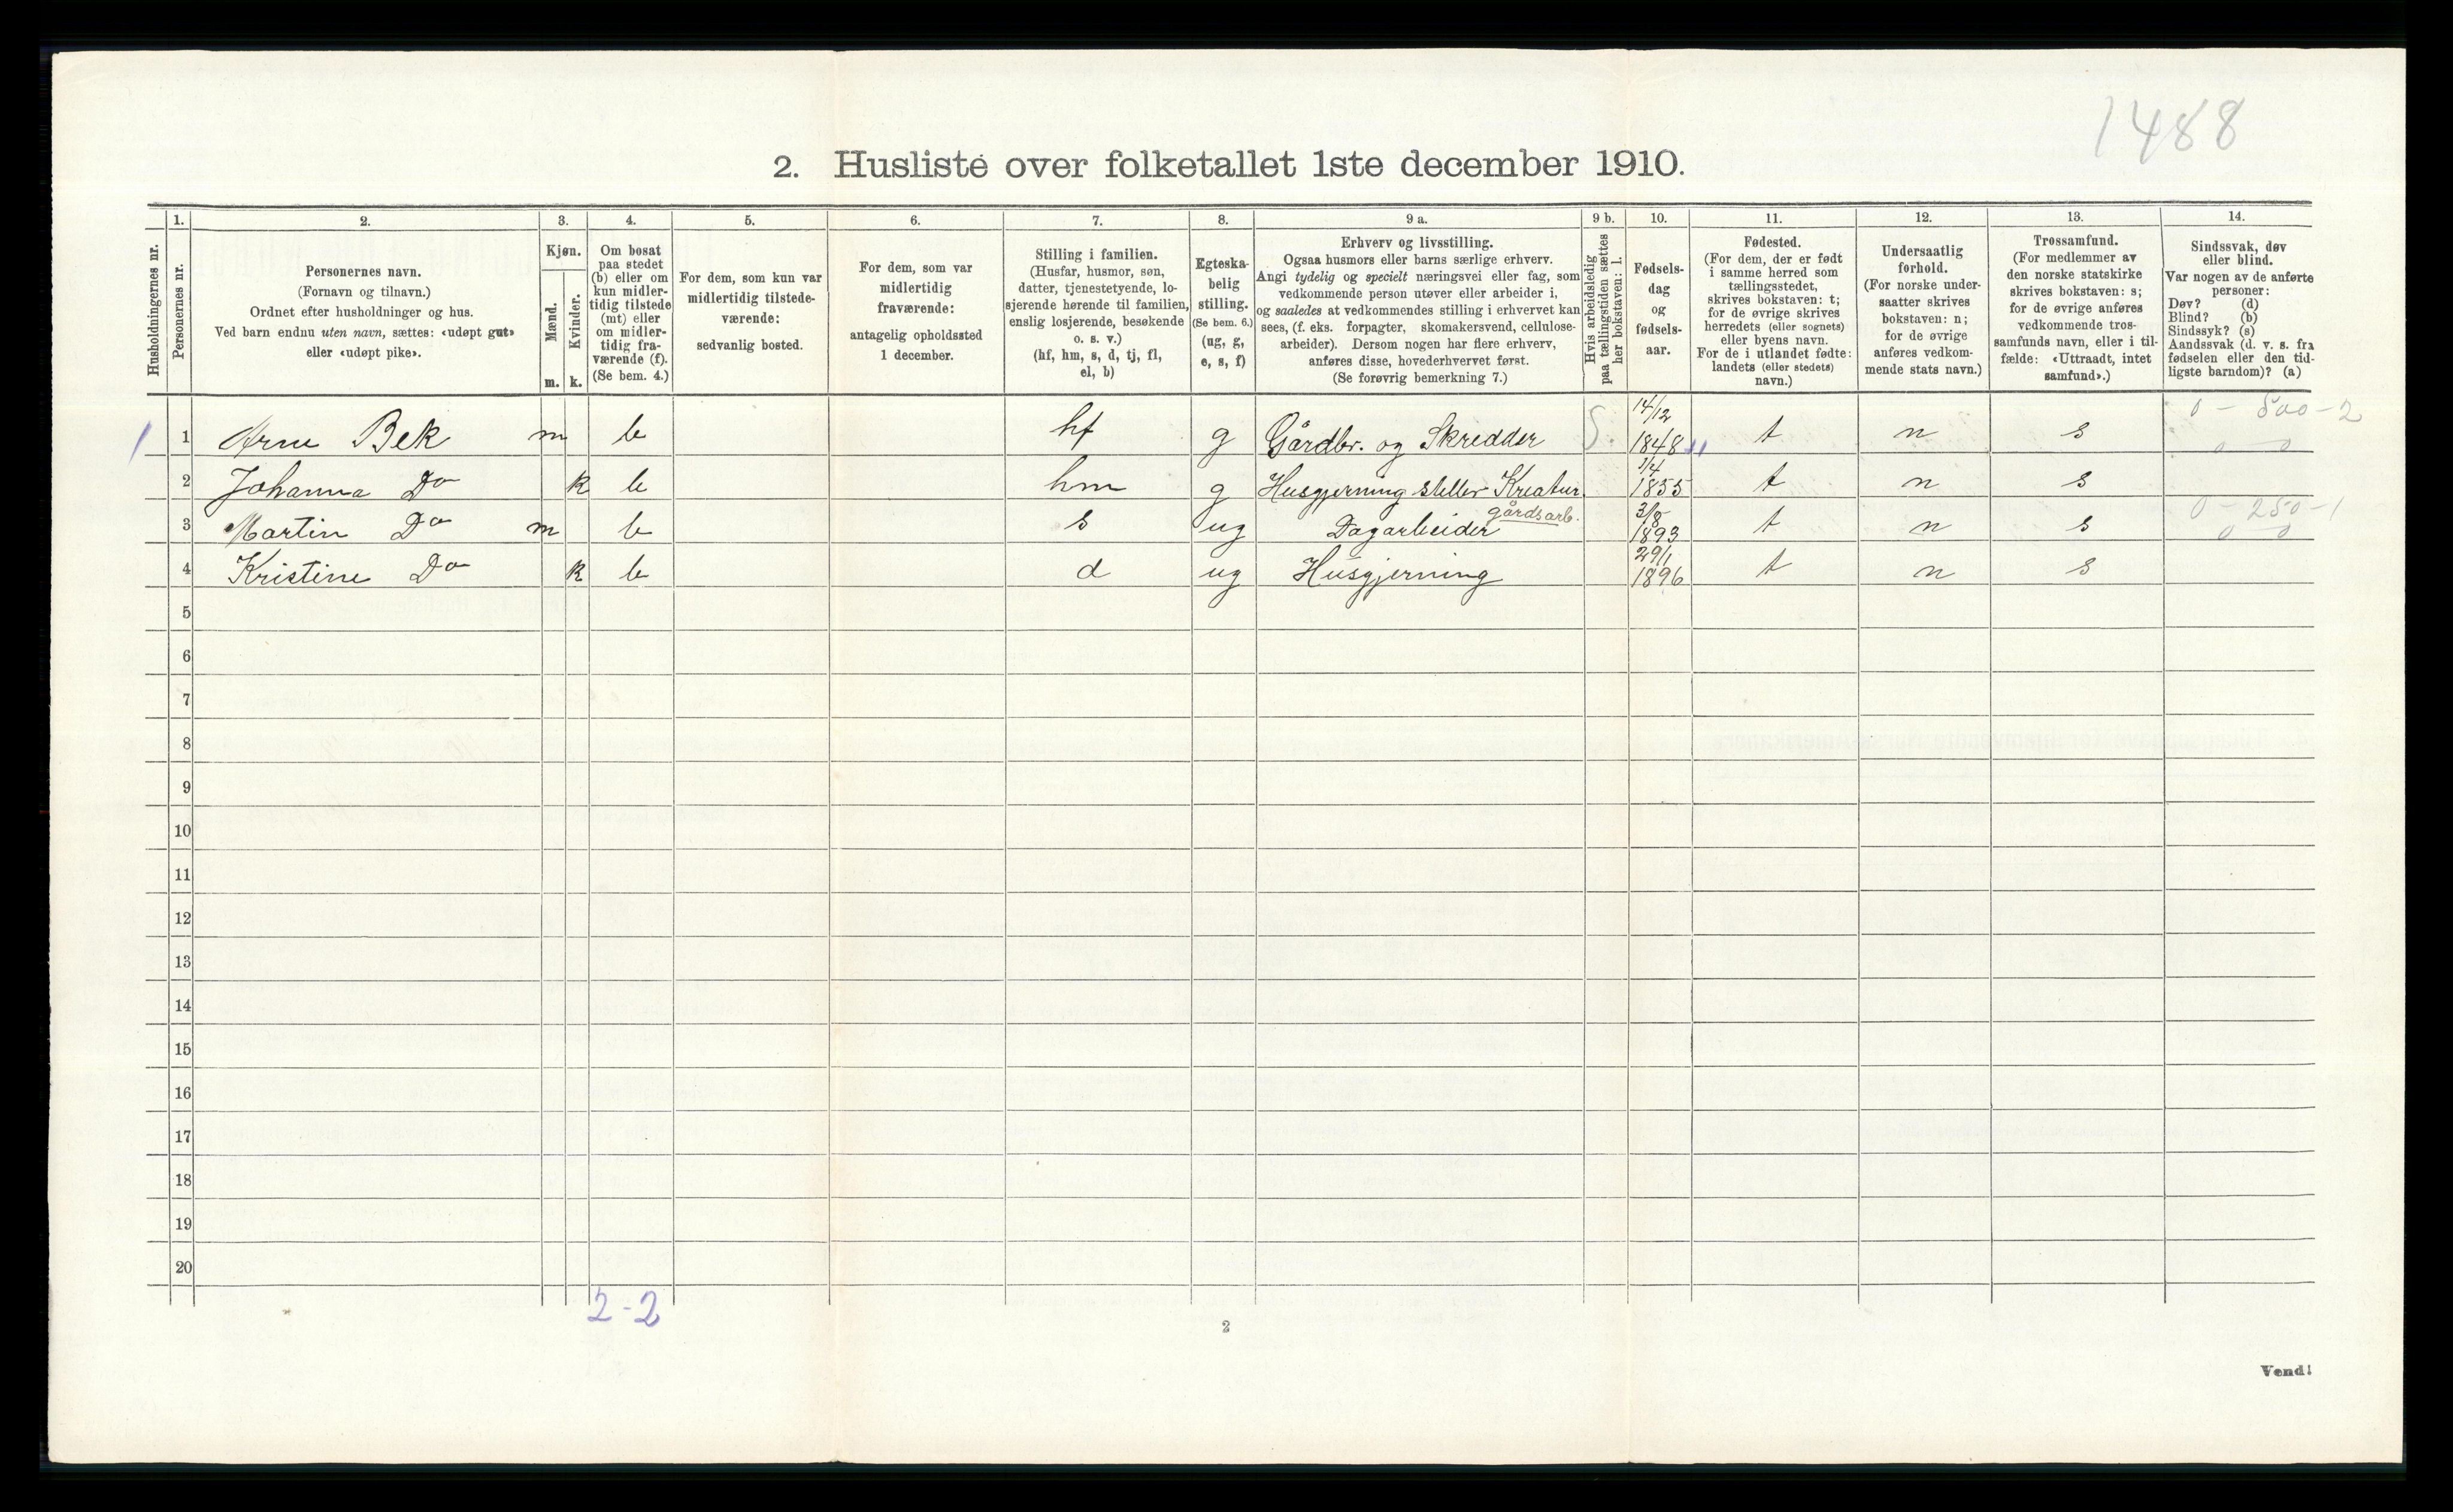 1488
2. Husliste over folketallet 1ste december 1910.
Husholdningernes nr.
1.
Personernes nr.
2.
Personernes navn.
(Fornavn og tilnavn.)
Ordnet efter husholdninger og hus.
Ved barn endnu uten navn, sættes: «udøpt gut»
eller «udøpt pike».
3.
Kjøn.
Mænd.
Kvinder.
m. k.
4.
Om bosat
paa stedet
(b) eller om
kun midler-
tidig tilstede
(mt) eller
om midler-
tidig fra-
værende (f).
(Se bem. 4.)
5.
For dem, som kun var
midlertidig tilstede-
værende:
sedvanlig bosted.
6.
For dem, som var
midlertidig
fraværende:
antagelig opholdssted
1 december.
7.
Stilling i familien.
(Husfar, husmor, søn,
datter, tjenestetyende, lo-
sjerende hørende til familien,
enslig losjerende, besøkende
o. s. v.)
(hf, hm, s, d, tj, fl,
el, b)
8.
Egteska-
belig
stilling.
(Se bem. 6.)
(ug, g,
e, s, f)
9 a.
Erhverv og livsstilling.
Ogsaa husmors eller barns særlige erhverv.
Angi tydelig og specielt næringsvei eller fag, som
vedkommende person utøver eller arbeider i,
og saaledes at vedkommendes stilling i erhvervet kan
sees, (f. eks. forpagter, skomakersvend, cellulose-
arbeider). Dersom nogen har flere erhverv,
anføres disse, hovederhvervet først.
(Se forøvrig bemerkning 7.)
9 b.
Hvis arbeidsledig
paa tællingstiden sættes
her bokstaven: l.
10.
Fødsels-
dag
og
fødsels-
aar.
11.
Fødested.
(For dem, der er født
i samme herred som
tællingsstedet,
skrives bokstaven: t;
for de øvrige skrives
herredets (eller sognets)
eller byens navn.
For de i utlandet fødte:
landets (eller stedets)
navn.)
12.
Undersaatlig
forhold.
(For norske under-
saatter skrives
bokstaven: n;
for de øvrige
anføres vedkom-
mende stats navn.)
13.
Trossamfund.
(For medlemmer av
den norske statskirke
skrives bokstaven: s;
for de øvrige anføres
vedkommende tros-
samfunds navn, eller i til-
fælde: «Uttraadt, intet
samfund».)
14.
Sindssvak, døv
eller blind.
Var nogen av de anførte
personer:
Døv? (d)
Blind? (b)
Sindssyk? (s)
Aandssvak (d. v. s. fra
fødselen eller den tid-
ligste barndom)? (a)
0 - 500 - 2
14/12
1 1 Arne Bek m b hf g Gårdbr. og Skredder S. 1848 t n s 0 0
1/4
2 Johanna Do k b hm g Husgjerning steller Kreatur 1855 t n s
gårdsarb. 3/8 0 - 250 - 1
3 Martin Do m b s ug Dagarbeider 1893 t n s 0 0
29/1
4 Kristine Do k b d ug Husgjerning 1896 t n s
5
6
7
8
9
10
11
12
13
14
15
16
17
18
19
20
2 - 2
2
Vend!